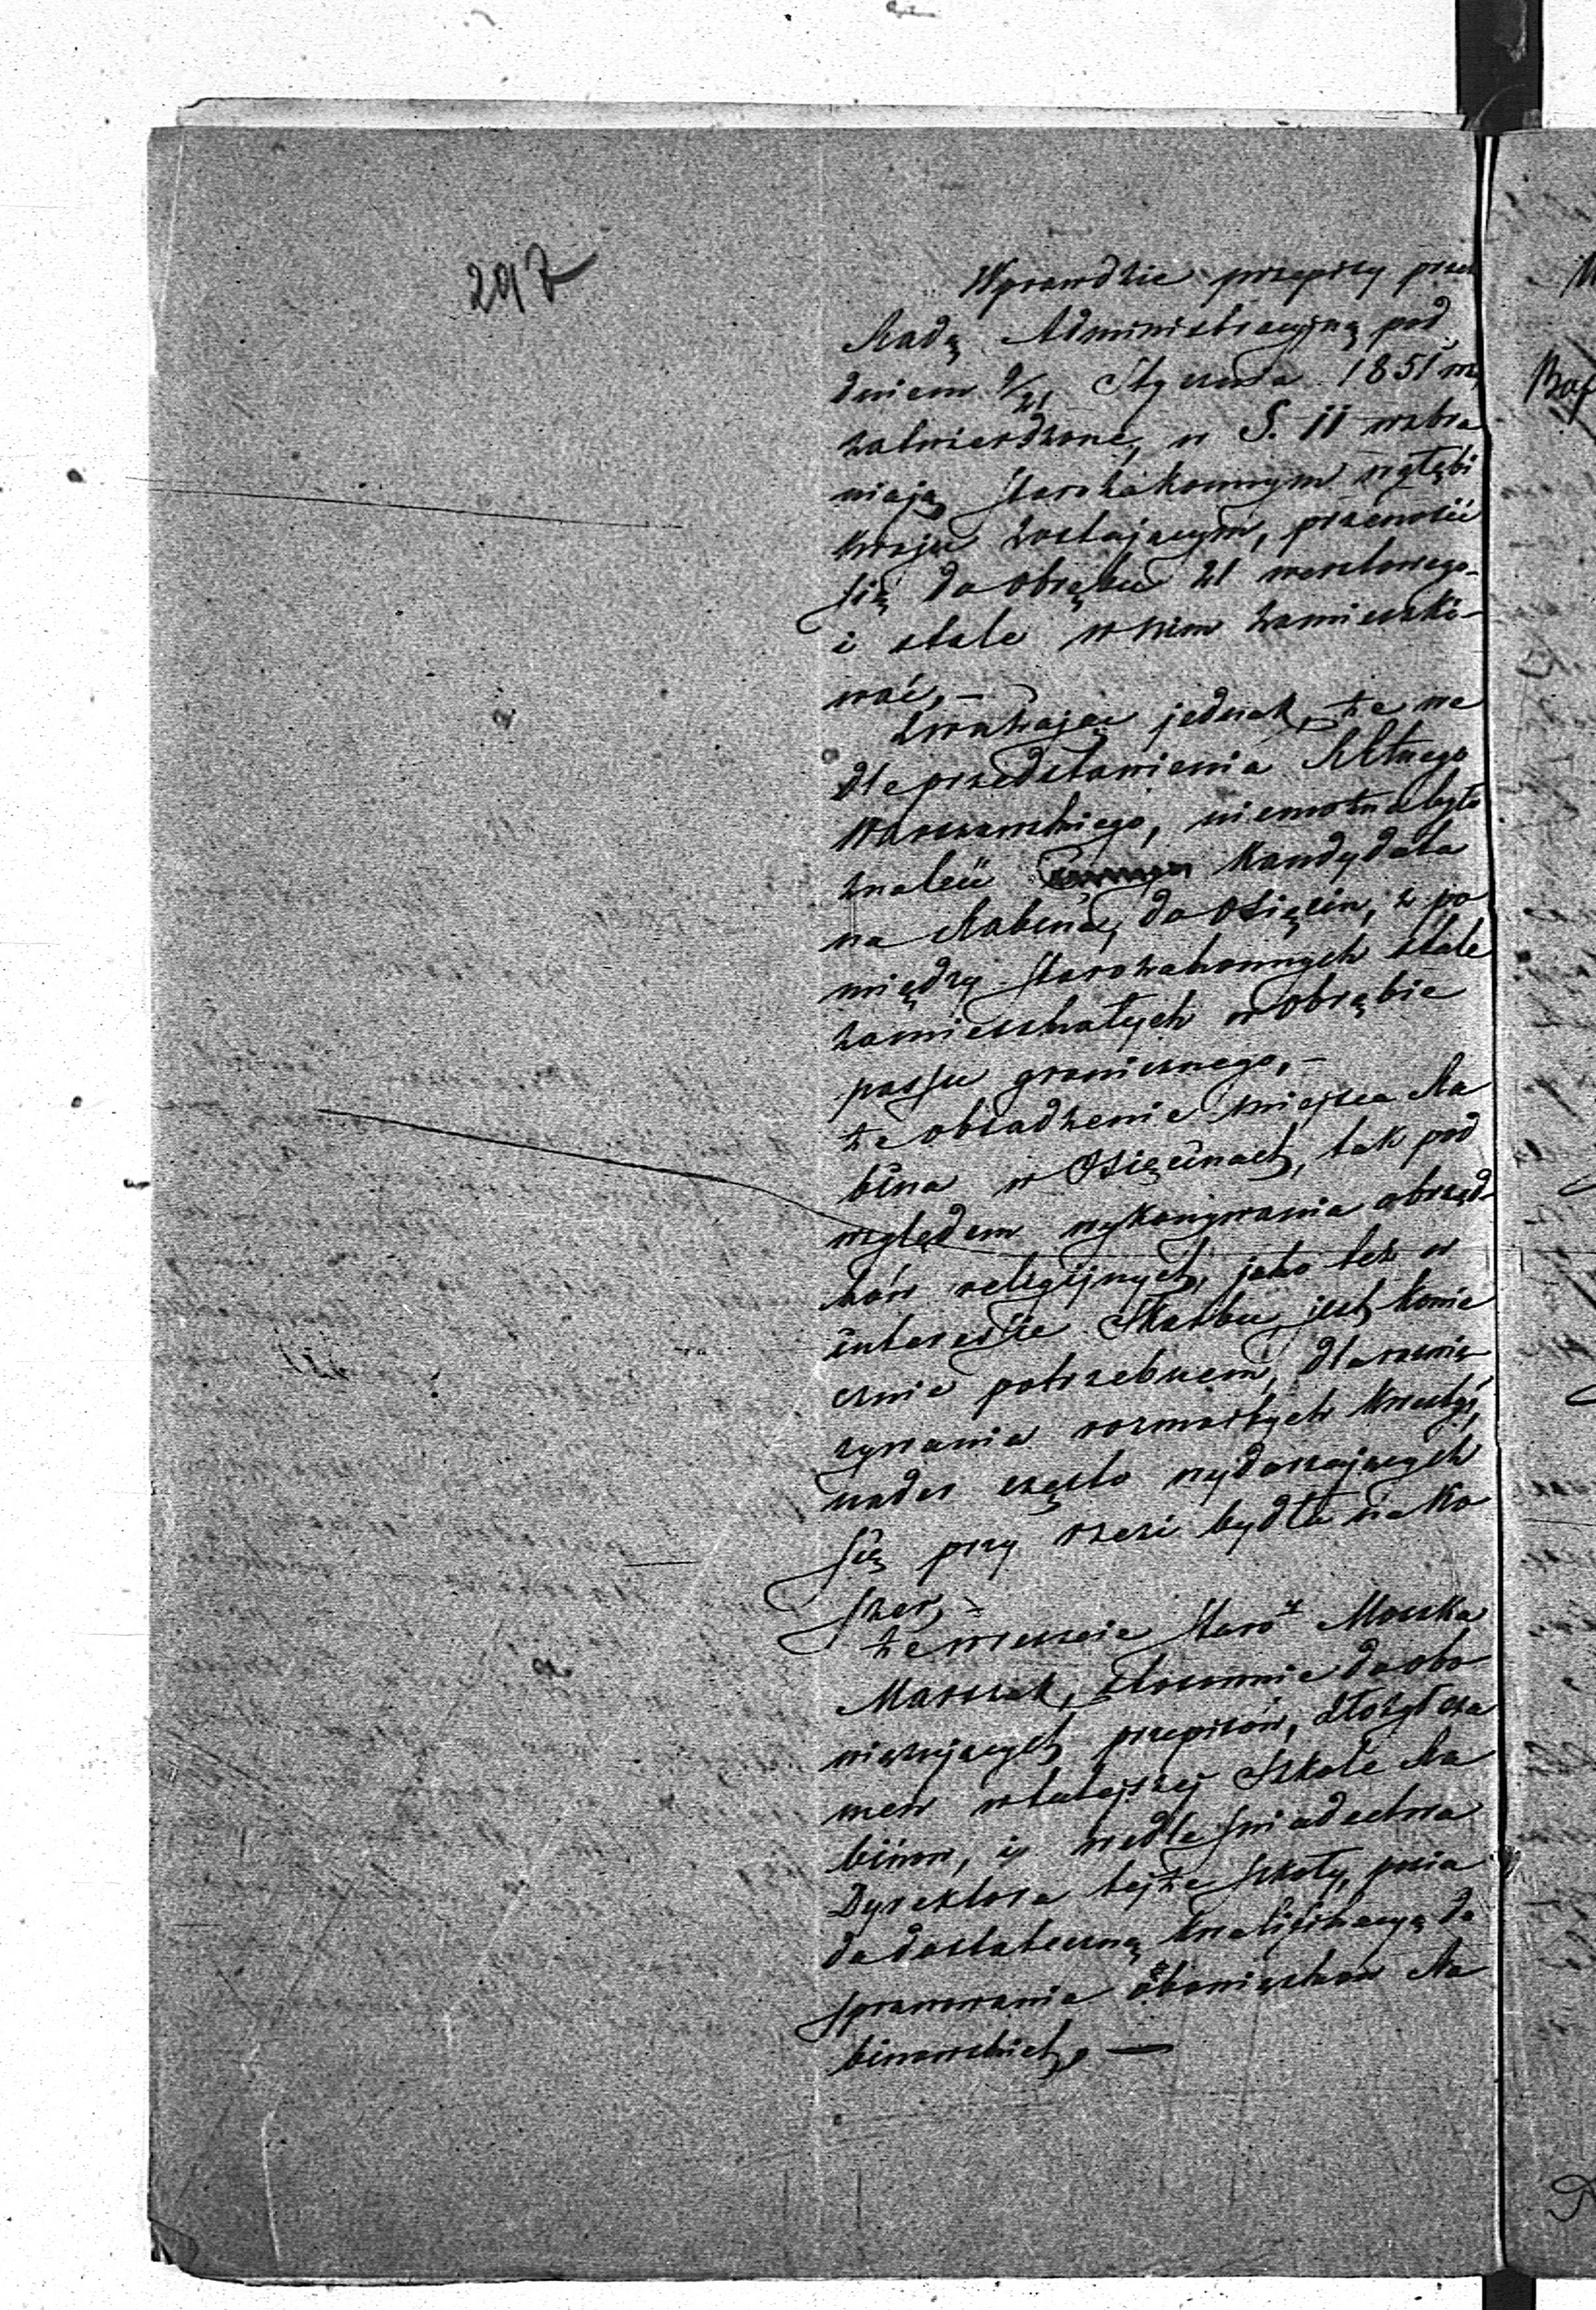 297
Wprawdzie przepisy przez
Radę Administracyjną pod
dniem 9/21 Stycznia 1851 r.
zatwierdzone, w §. 11 wzbra
niają starozakonnym w głębi
kraju zostającym, przenosić
się do obrębu 21 werstowego
i stale w nim zamieszki-
wać, –
Zważając jednak, że we
dle przedstawienia
Warszawskiego, niemożna było
znaleść kandydata
na Rabina do Osięcin, z po
między starozakonnych stale
zamieszkałych w obrębie
passu granicznego, –
że obsadzenie miejsca Ra
bina w Osięcinach, tak pod
względem wykonywania obrząd-
ków religijnych, jako też w
interesie Skarbu jest konie
cznie potrzebnem, dla rozwią-
zywania rozmaitych kwestyi,
nader często wydarzających
się przy rzezi bydła na ko
szer, –
że wreszcie Staroz. Moszka
Marszak, stosownie do obo
wiązujących przepisów, złożył exa
men w tutejszej Szkole Ra
binów, i wedle świadectwa
Dyrektora tejże szkoły, posia
da dostateczną kwalifikacyą do
sprawowania obowiązków Ra
binowskich, —